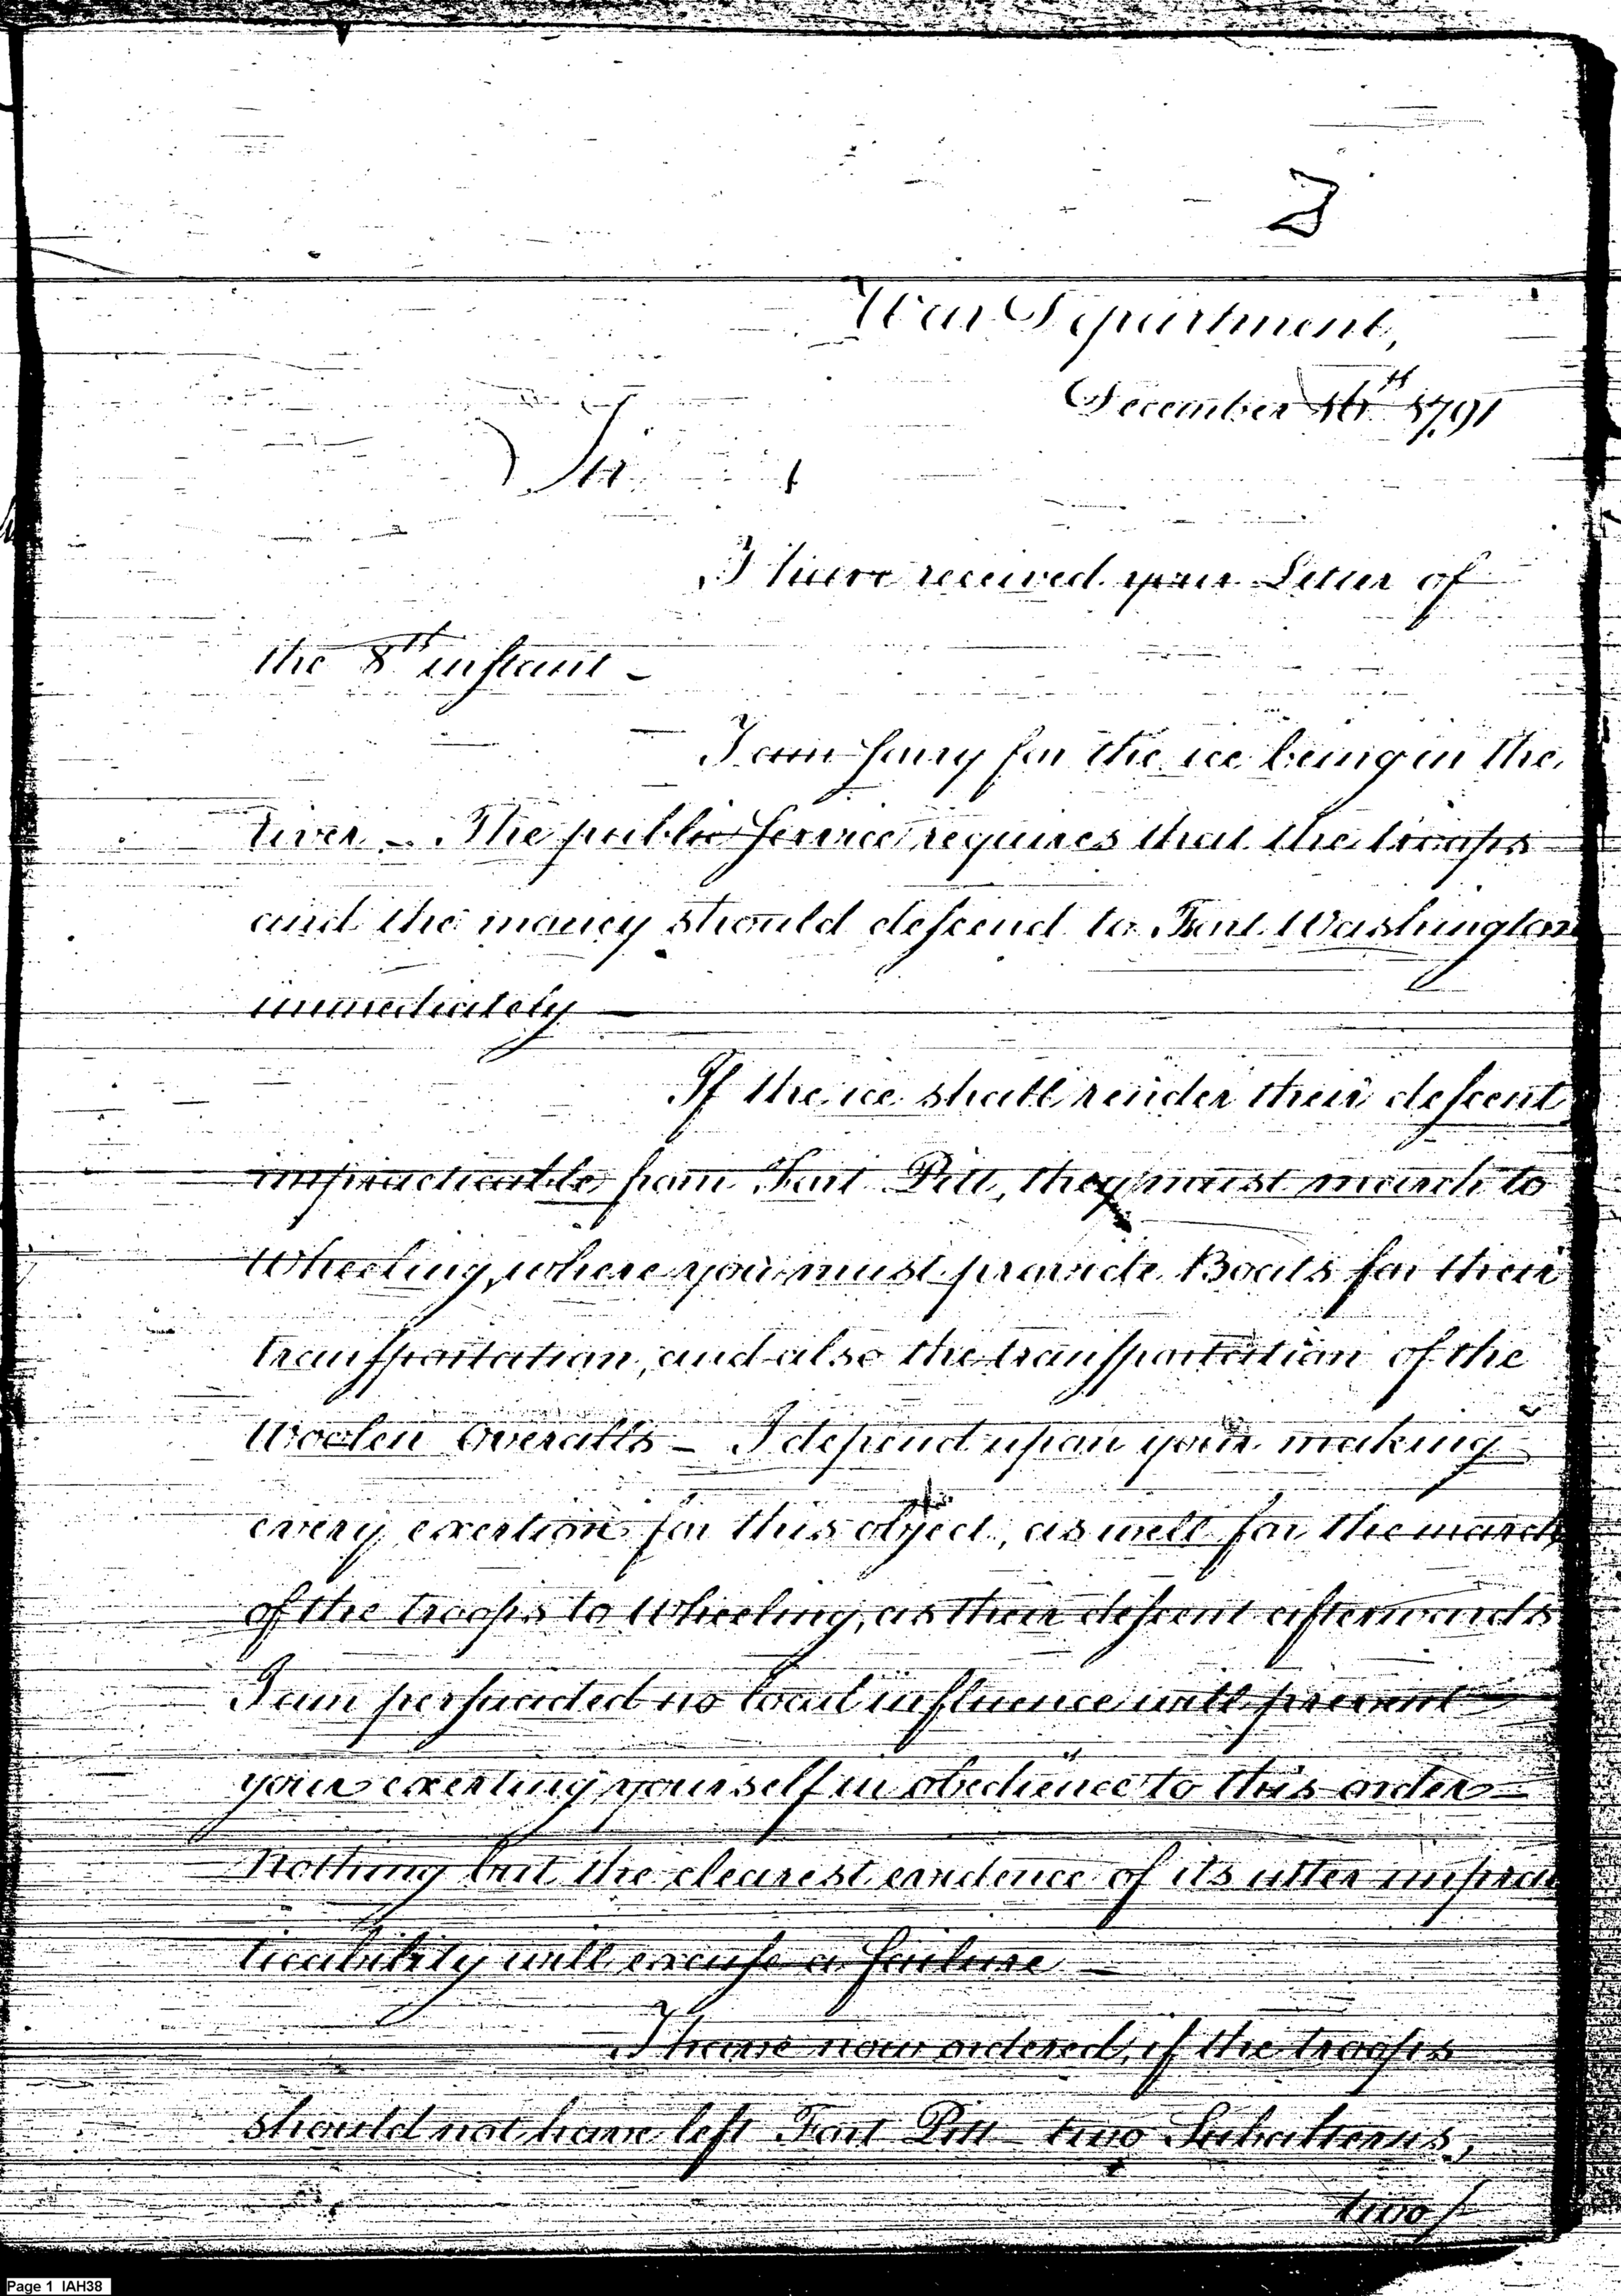 2
War Department,
December 16th 1791
Sir
I have received your Letter of
the 8th instant –
I am sorry for the ice being in the
river – The public service requires that the troops
and the money should descend to Fort Washington
immediately –
If the ice shall render their descent
impracticable from Fort Pitt, they must march to
Wheeling, where you must provide Boats for their
transportation, and also the transportation of the
Woolen Overalls – I depend upon your making
every exertion for this object, as well for the march
of the troops to Wheeling, as their descent afterwards
I am persuaded no local influence will prevent
your exerting yourself in obedience to this order –
Nothing but the clearest evidence of its utter imprac
ticability will excuse a failure –
I have now ordered, if the troops
should not have left Fort Pitt two Subalterns,
two
Page 1 IAH38